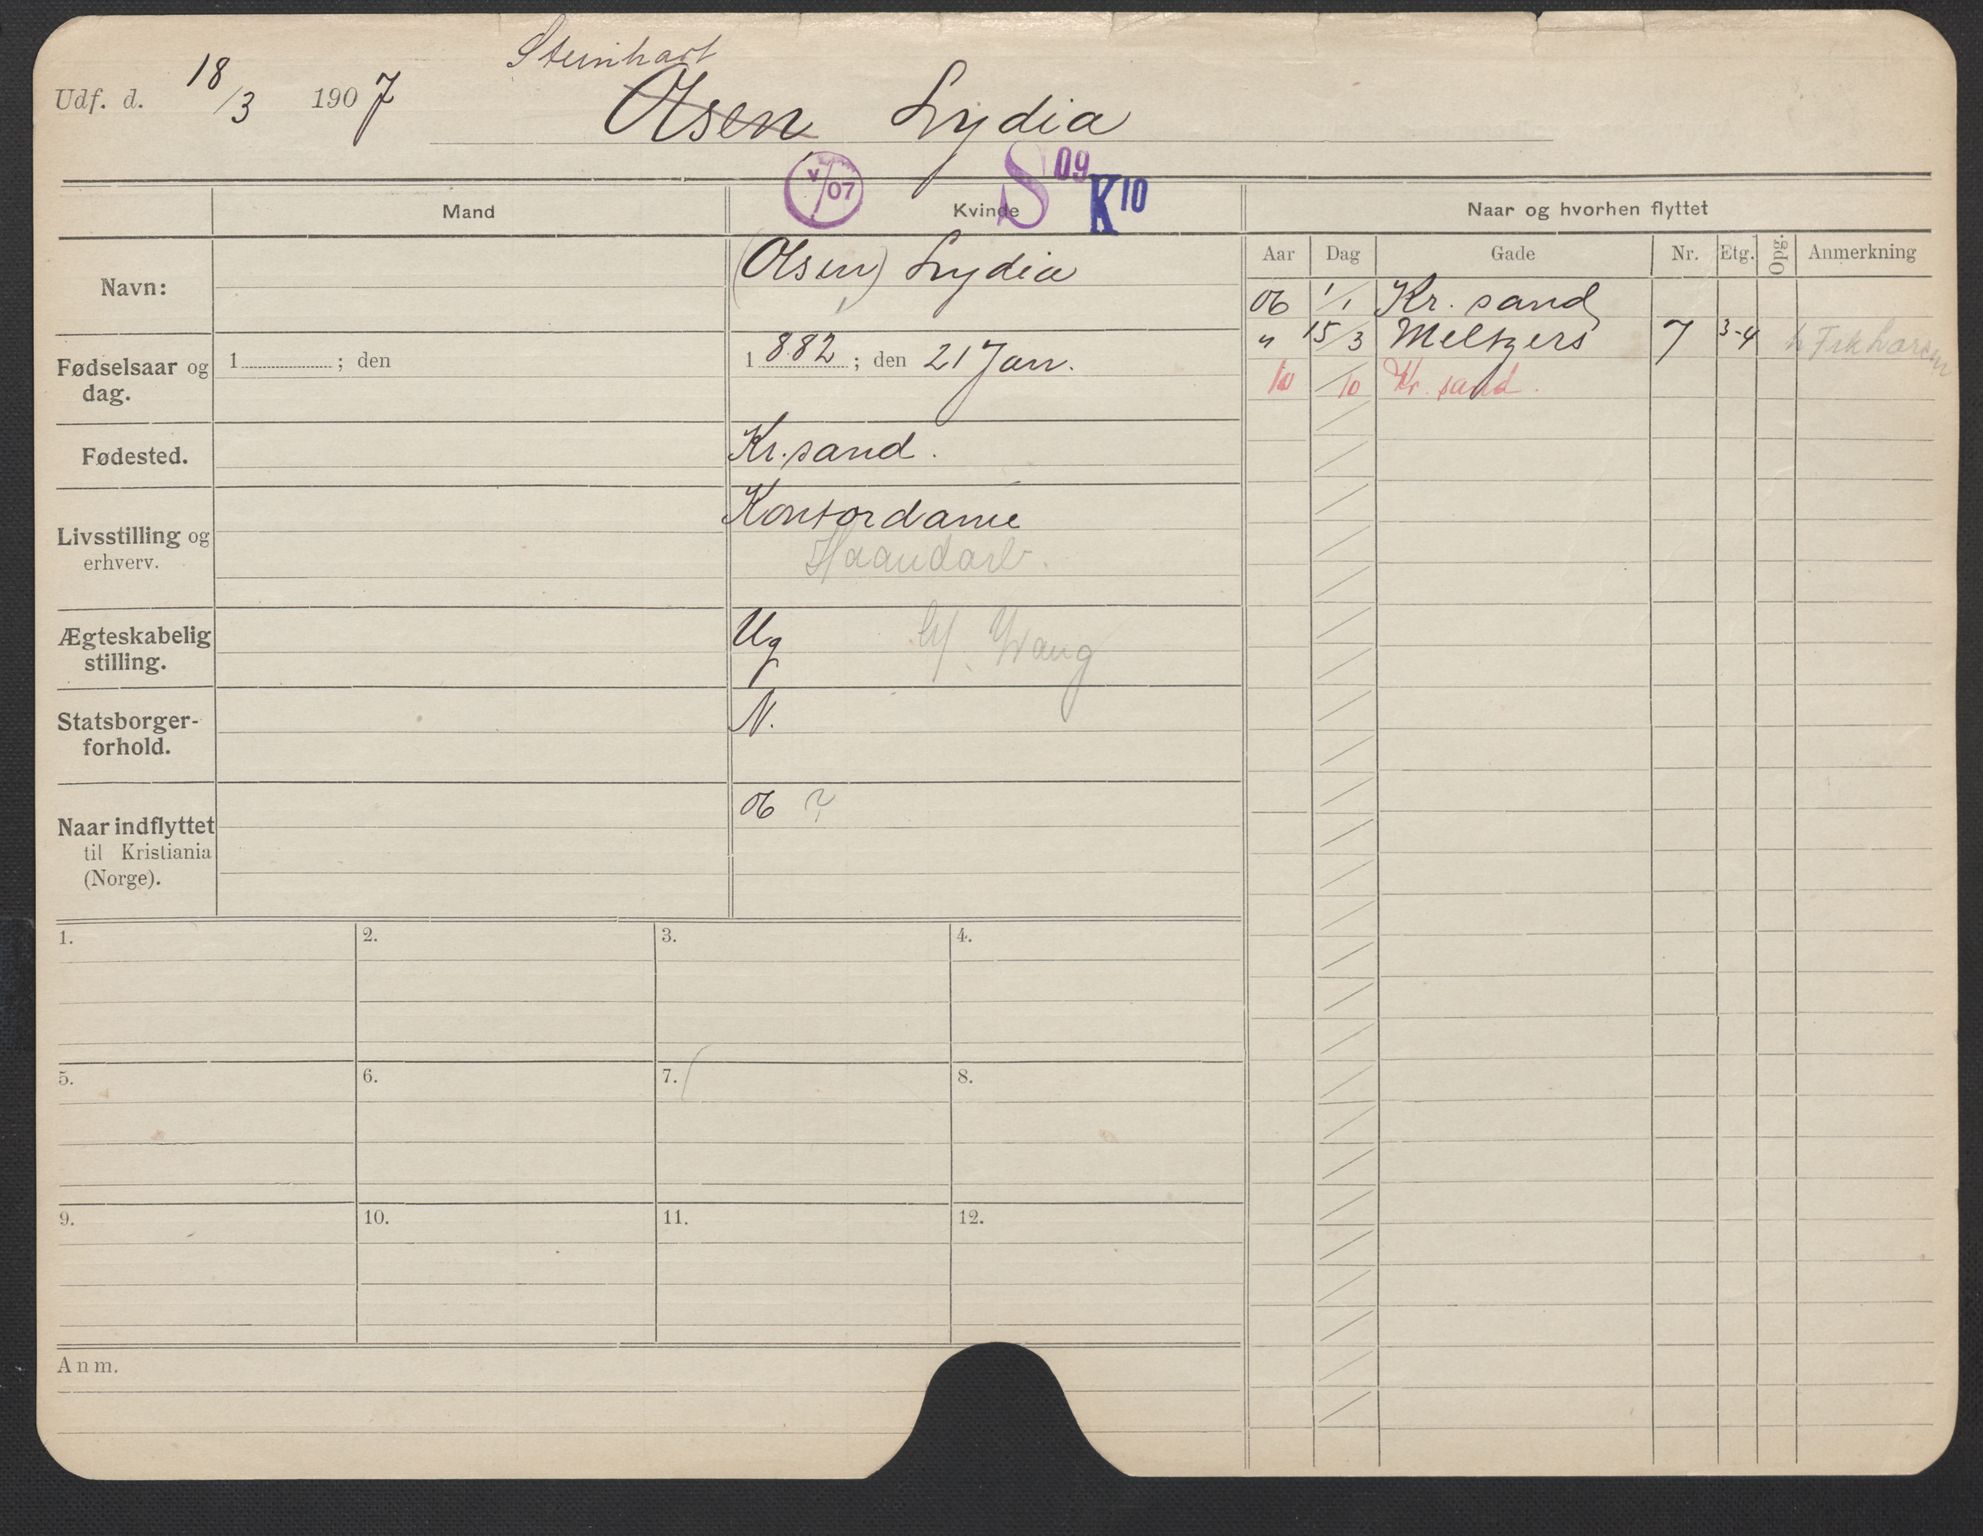 Steinhart
Udf. d. 18/3 1907 Olsen, Lydia
V/07 S 09 K 10
Mand Kvinde Naar og hvorhen flyttet
Aar Dag Gade Nr. Etg. Opg. Anmerkning
Navn: (Olsen) Lydia
06 1/1 Kr. sand
" 15/3 Meltzers 7 3-4 h Frk Larsen
10 /10 Kr. sand.
Fødselsaar og dag. 1 ; den 1882 ; den 21 Jan.
Fødested. Kr.sand.
Livsstilling og erhverv. Kontordame
Haandarb.
Ægteskabelig stilling. Ug
Statsborger-forhold. N.
Naar indflyttet til Kristiania (Norge). 06 ?
1. 2. 3. 4.
5. 6. 7. 8.
9. 10. 11. 12.
Anm.